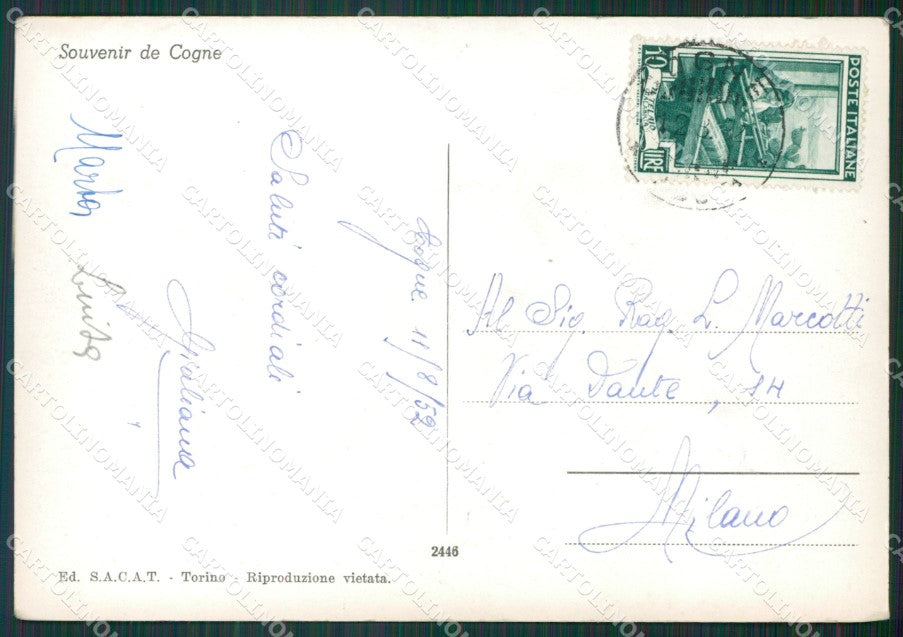 Souvenir de Cogne
Cogne 11/8/52
Saluti cordiali
Giuliana
Marta
Luisa
POSTE ITALIANE
10
LIRE
Al Sig. Rag. L. Marcotti
Via Dante, 14
Milano
2446
Ed. S.A.C.A.T. - Torino - Riproduzione vietata.
CARTOLINOMANIA